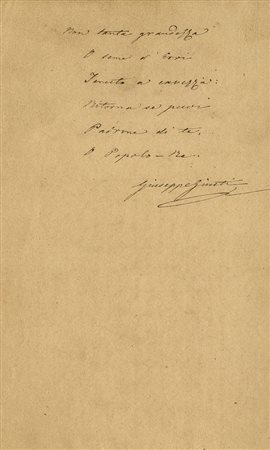 Non tanta grandezza
O seme d'eroi
Tenuto a cavezza:
Ritorna se puoi
Padrone di te,
O Popolo-Re.
Giuseppe Giusti